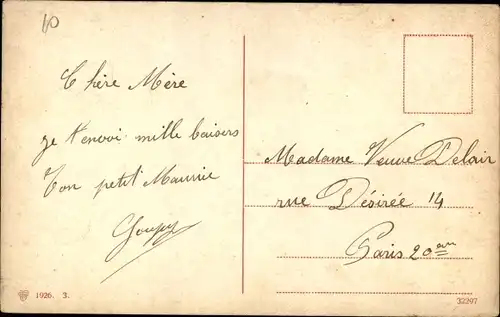 10
Chère Mère
je t'envoi mille baisers
Ton petit Maurice
Madame Veuve Delair
rue Désirée 14
Paris 20em
1926. 3.
32297